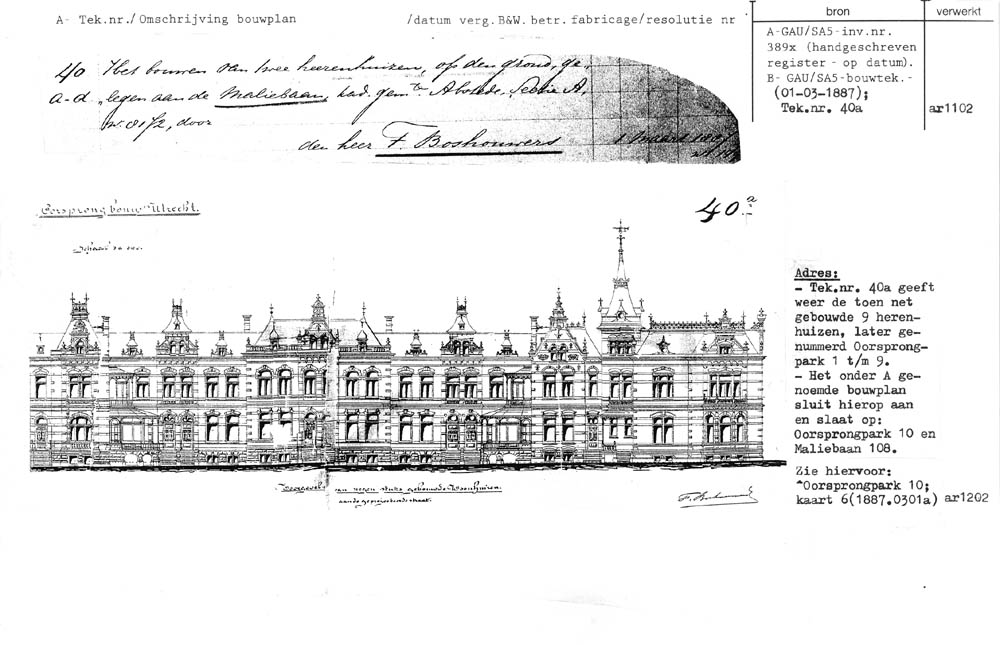 A- Tek.nr./Omschrijving bouwplan /datum verg.B&W.betr.fabricage/resolutie nr
bron verwerkt
A-GAU/SA5-inv.nr.
389x (handgeschreven
register - op datum).
B- GAU/SA5-bouwtek.-
(01-03-1887);
Tek.nr. 40a
ar1102
40 Het bouwen van twee heerenhuizen, op den grond, ge-
a-d legen aan de Maliebaan, kad. gemte Abstede, Sectie A,
door
den heer F. Boshouwers 1 Maart
Oorsprongbouw Utrecht.
40a
van negen stuks gebouwde Woonhuizen
aan de geprojecteerde straat.
Adres:
- Tek.nr. 40a geeft
weer de toen net
gebouwde 9 heren-
huizen, later ge-
nummerd Oorsprong-
park 1 t/m 9.
- Het onder A ge-
noemde bouwplan
sluit hierop aan
en slaat op:
Oorsprongpark 10 en
Maliebaan 108.
Zie hiervoor:
^Oorsprongpark 10;
kaart 6(1887.0301a) ar1202